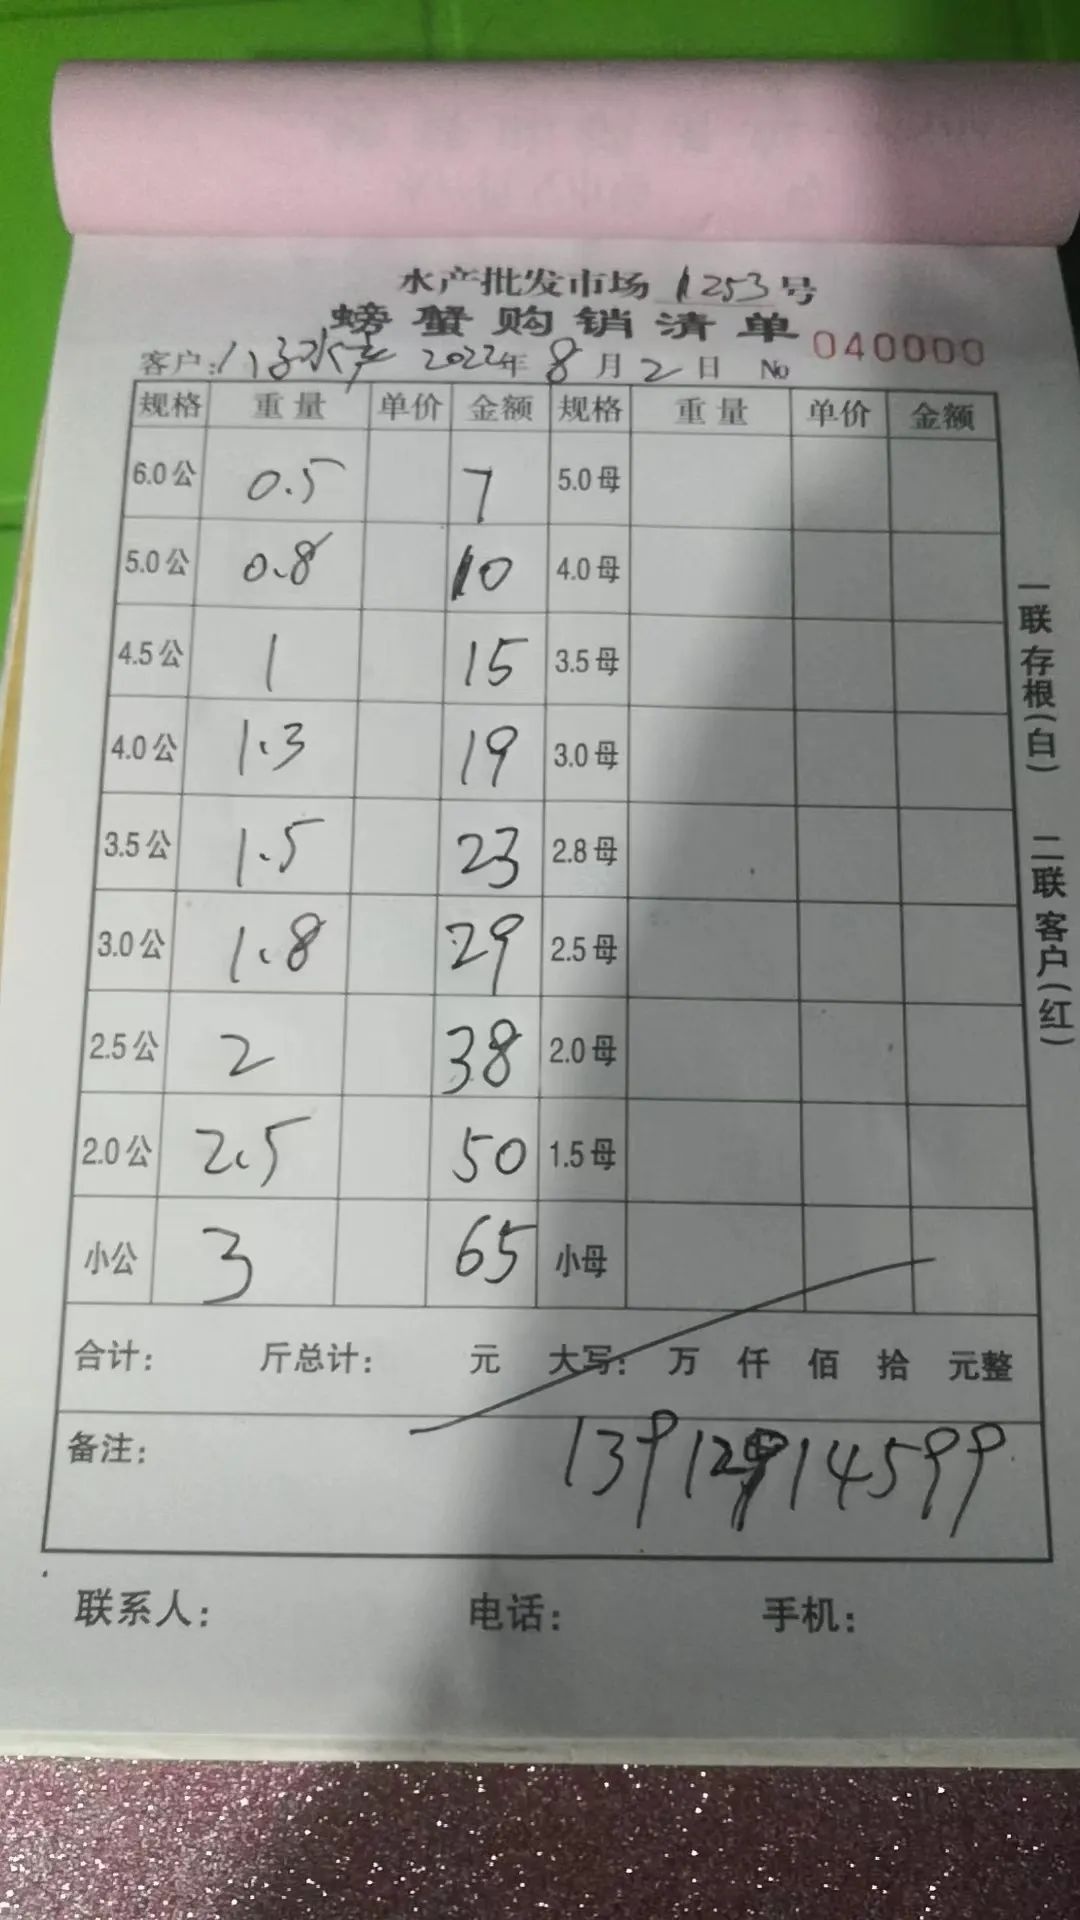 水产批发市场 1253号
螃蟹购销清单
客户: 水产 2022年 8月 2日 No 040000
规格 重量 单价 金额 规格 重量 单价 金额
6.0公 0.5 7 5.0母
5.0公 0.8 10 4.0母
4.5公 1 15 3.5母
4.0公 1.3 19 3.0母
3.5公 1.5 23 2.8母
3.0公 1.8 29 2.5母
2.5公 2 38 2.0母
2.0公 2.5 50 1.5母
小公 3 65 小母
合计: 斤总计: 元 大写: 万 仟 佰 拾 元整
备注:
联系人: 电话: 手机:
一联存根(白) 二联客户(红)